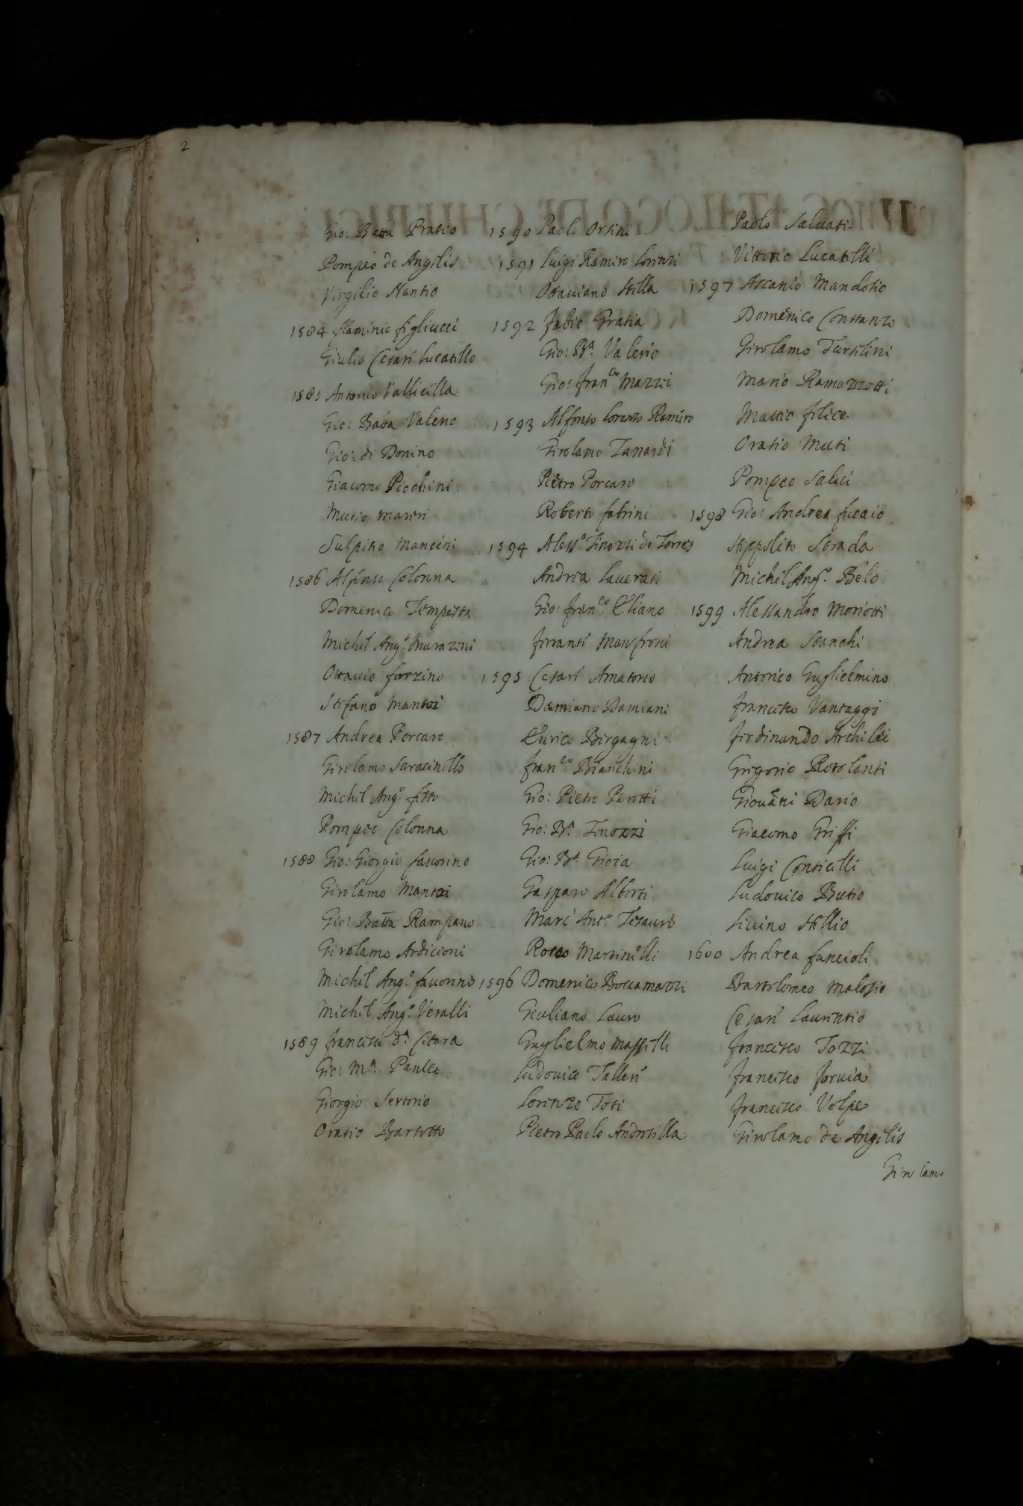 2
Gio: Batta Pratio
Pompeo de Angelis
Virgilio Nuntio
1584 flaminio figliucci
Giulio Cesare Lucatillo
1585 Antonio Vallicilla
Gio: Batta Valerio
Gio: di Bonino
Giacomo
Mutio
Sulpitio Mancini
1586 Alfonso Colonna
Domenico Tempesta
Michel Ang.º Marazoni
Ottavio
Stefano Mantoi
1587 Andrea Porcaro
Girolamo Saracinello
Michel Ang.º
Pompeo Colonna
1588 Gio: Giorgio favorino
Girolamo
Gio: Batta Rampano
Girolamo Ardicioni
Michel Ang.º favorino
Michel Ang.º Veralli
1589 francesco
Gio: M.ª
Giorgio Sertorio
Oratio Bartotto
1590 Paolo Orsini
1591 Luigi Ramiro Lorenzi
Ottaviano Stella
1592 fabio Gratia
Gio: B.ª Valerio
Gio: fran.co Mazzi
1593 Alfonso Lorenzo Ramiro
Girolamo Zanardi
Pietro Porcaro
Roberto fabrini
1594 Aless.º Tinozzi de Torres
Andrea Laverati
Gio: fran.co Eliano
ferrante Manfroni
1595 Cesare Amatorio
Damiano Damiani
Enrico Birgagni
fran.co Bianchini
Gio: Pietro Peretti
Gio: B.ª Tinozzi
Gio: B.ª Gioia
Gasparo Alberti
Marc' Ant.º Tesauro
Rocco Martinelli
1596 Domenico Boccamazzi
Giuliano Lauro
Guglielmo Massilli
Ludovico
Lorenzo Toti
Pietro Paolo Androsilla
Paolo Salvatio
Vittorio Lucatilli
1597 Ascanio Mandosio
Domenico Constanzo
Girolamo Turselini
Mario Ramazzotti
Mattio filice
Oratio Muti
Pompeo Salici
1598 Gio: Andrea
Hippolito Strada
Michel Ang.º Belo
1599 Alessandro Moriotti
Andrea Stanchi
Antonio Guglielmino
francesco Vantaggi
ferdinando Archilei
Gregorio Rotolanti
Giovani Dario
Giacomo Griffi
Luigi Conticelli
Ludovico Butio
Livino Stillio
1600 Andrea fancioli
Bartolomeo Malosio
Cesare Laurentio
francesco Tozzi
francesco
francesco Volpe
Girolamo de Angelis
Girolamo